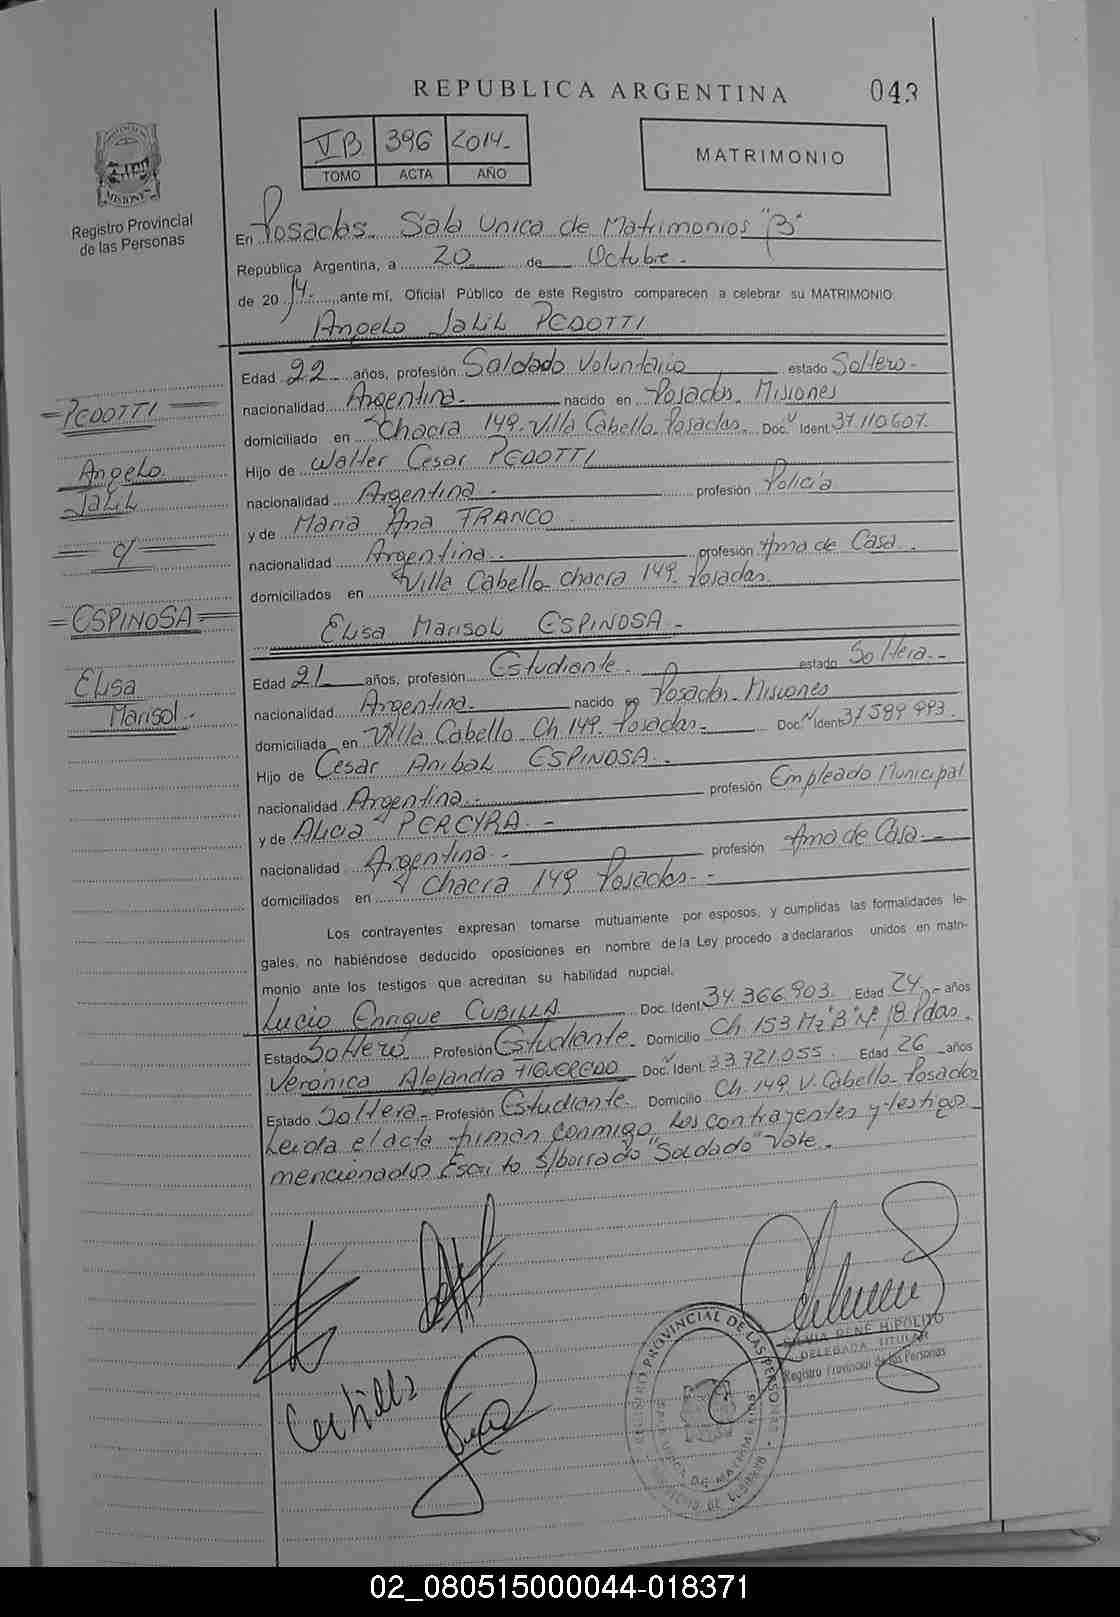 REPUBLICA ARGENTINA
043
VB 396 2014.-
TOMO ACTA AÑO
MATRIMONIO
MISIONES
Registro Provincial
de las Personas
En Posadas. Sala Unica de Matrimonios "B"
República Argentina, a 20 de Octubre.-
de 20 14.- ante mí, Oficial Público de este Registro comparecen a celebrar su MATRIMONIO:
Angelo Jalil PEDOTTI
Edad 22 años, profesión Soldado Voluntario estado Soltero-
nacionalidad Argentina.- nacido en Posadas. Misiones
domiciliado en Chacra 149. Villa Cabello. Posadas. Doc. Ident. 37.110.607.
Hijo de Walter Cesar PEDOTTI
nacionalidad Argentina.- profesión Policía
y de Maria Ana FRANCO.
nacionalidad Argentina.- profesión Ama de Casa.-
domiciliados en Villa Cabello chacra 149. Posadas.
=PEDOTTI=
Angelo
Jalil
c/
=ESPINOSA=
Elisa
Marisol.-
Elisa Marisol ESPINOSA.-
Edad 21 años, profesión Estudiante.- estado Soltera.-
nacionalidad Argentina.- nacido en Posadas. Misiones
domiciliada en Villa Cabello Ch. 149. Posadas.- Doc. Ident. 37 589 993.
Hijo de Cesar Anibal ESPINOSA.-
nacionalidad Argentina.- profesión Empleado Municipal
y de Alicia PEREYRA.-
nacionalidad Argentina.- profesión Ama de Casa.-
domiciliados en Chacra 149 Posadas.-
Los contrayentes expresan tomarse mutuamente por esposos, y cumplidas las formalidades le-
gales, no habiéndose deducido oposiciones en nombre de la Ley procedo a declararlos unidos en matri-
monio ante los testigos que acreditan su habilidad nupcial.
Lucio Enrique CUBILLA Doc. Ident. 34.366.903. Edad 24.- años
Estado Soltero Profesión Estudiante. Domicilio Ch. 153 Mz "B" Nº 18 Pdas.
Verónica Alejandra FIGUEREDO Doc. Ident. 33.721.055. Edad 26 años
Estado Soltera.- Profesión Estudiante. Domicilio Ch. 149. V. Cabello. Posadas
Leida el acta firman conmigo los contrayentes y testigo
mencionados. Escrito s/borrado "Soldado" Vale.-
Cubilla
SILVIA RENE HIPOLITO
DELEGADA TITULAR
Registro Provincial de las Personas
REGISTRO PROVINCIAL DE LAS PERSONAS
SALA UNICA DE MATRIMONIOS
MINISTERIO DE GOBIERNO
02_080515000044-018371